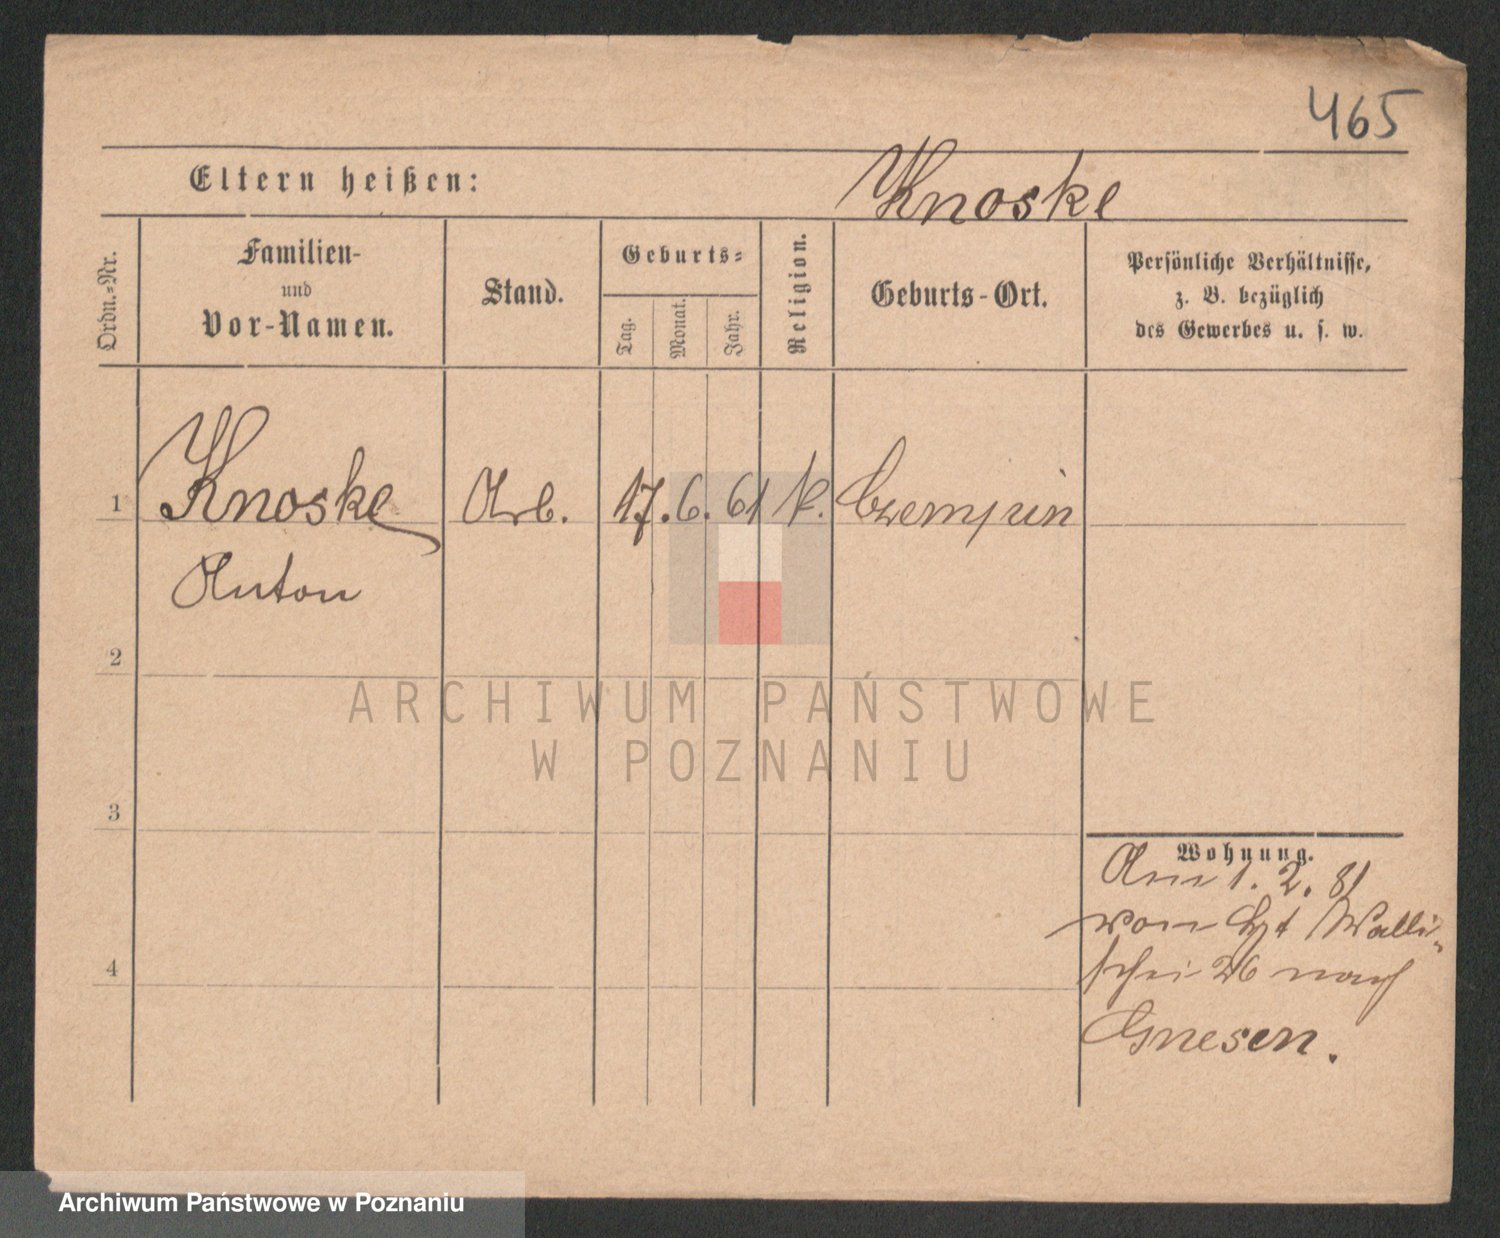 465
Eltern heißen:
Knoske
Ordn.-Nr.
Familien-
und
Vor-Namen.
Stand.
Geburts-
Tag.
Monat.
Jahr.
Religion.
Geburts-Ort.
Persönliche Verhältnisse,
z. B. bezüglich
des Gewerbes u. s. w.
1 Knoske Arb. 17. 6. 61 k. Czempin
Anton
2
ARCHIWUM PAŃSTWOWE
W POZNANIU
3
Wohnung.
Am 1. 2. 81
von Walli-
schei 26 nach
4
Gnesen.
Archiwum Państwowe w Poznaniu